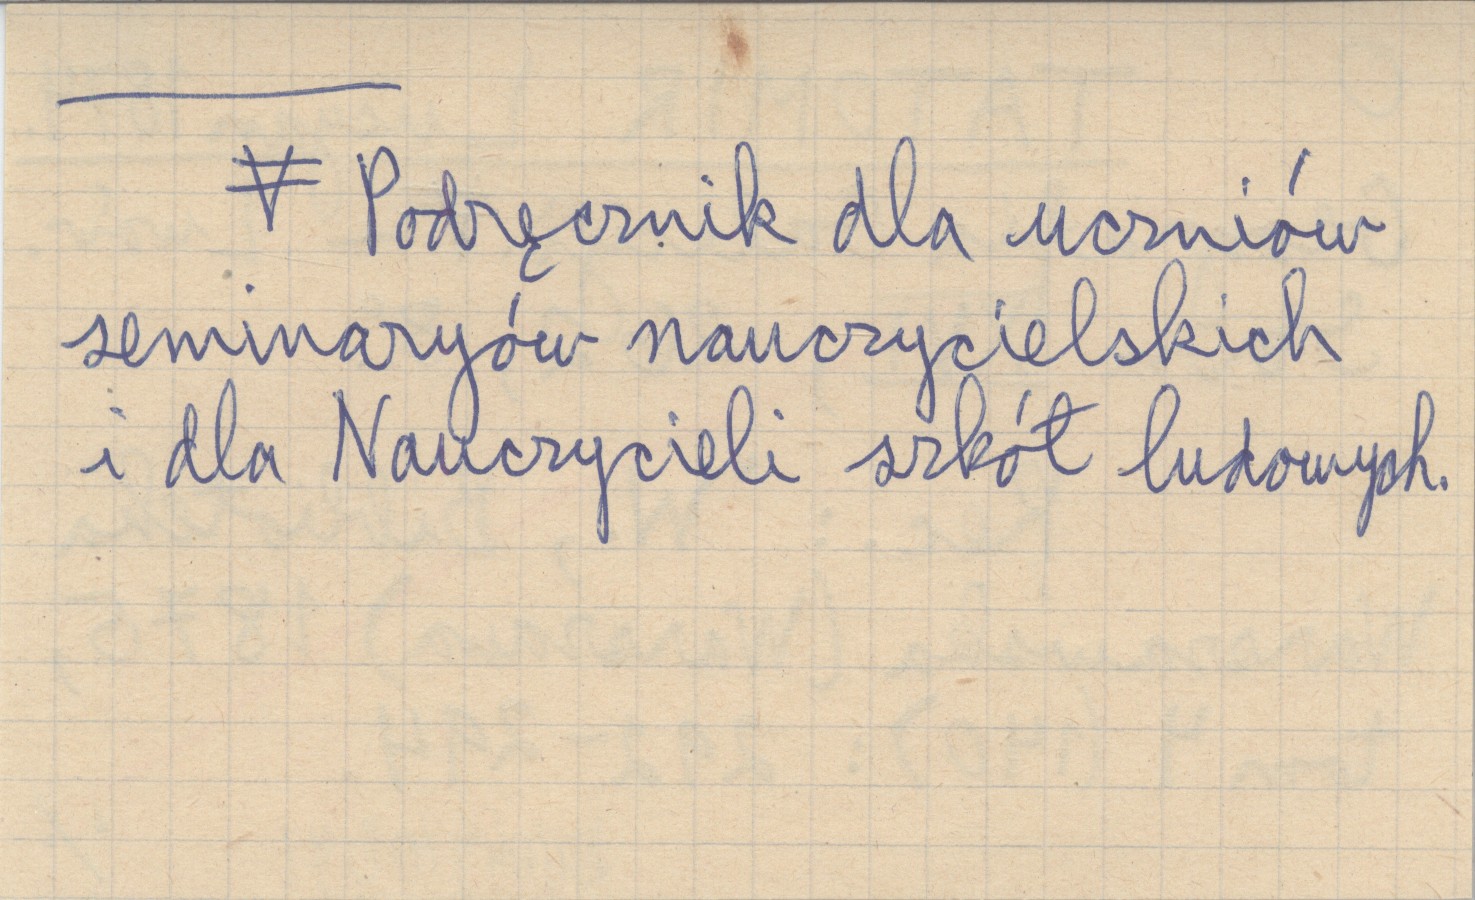 Podręcznik dla uczniów
seminaryów nauczycielskich
i dla Nauczycieli szkół ludowych.